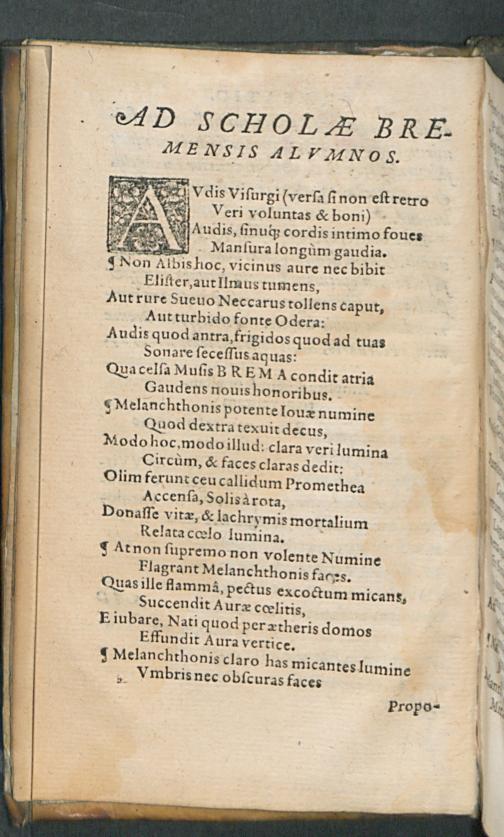 AD SCHOLÆ BRE-
MENSIS ALVMNOS.
AVdis Visurgi (versa si non est retro
Veri voluntas & boni)
Audis, sinuq; cordis intimo foues
Mansura longùm gaudia.
¶ Non Albis hoc, vicinus aure nec bibit
Elister, aut Ilmus tumens,
Aut rure Sueuo Neccarus tollens caput,
Aut turbido fonte Odera:
Audis quod antra, frigidos quod ad tuas
Sonare secessus aquas:
Qua celsa Musis BREMA condit atria
Gaudens nouis honoribus.
¶ Melanchthonis potente Iouæ numine
Quod dextra texuit decus,
Modo hoc, modo illud: clara veri lumina
Circùm, & faces claras dedit:
Olim ferunt ceu callidum Promethea
Accensa, Solis à rota,
Donasse vitæ, & lachrymis mortalium
Relata cœlo lumina.
¶ At non supremo non volente Numine
Flagrant Melanchthonis faces.
Quas ille flammâ, pectus excoctum micans,
Succendit Auræ cœlitis,
E iubare, Nati quod per ætheris domos
Effundit Aura vertice.
¶ Melanchthonis claro has micantes lumine
Vmbris nec obscuras faces
Propo-